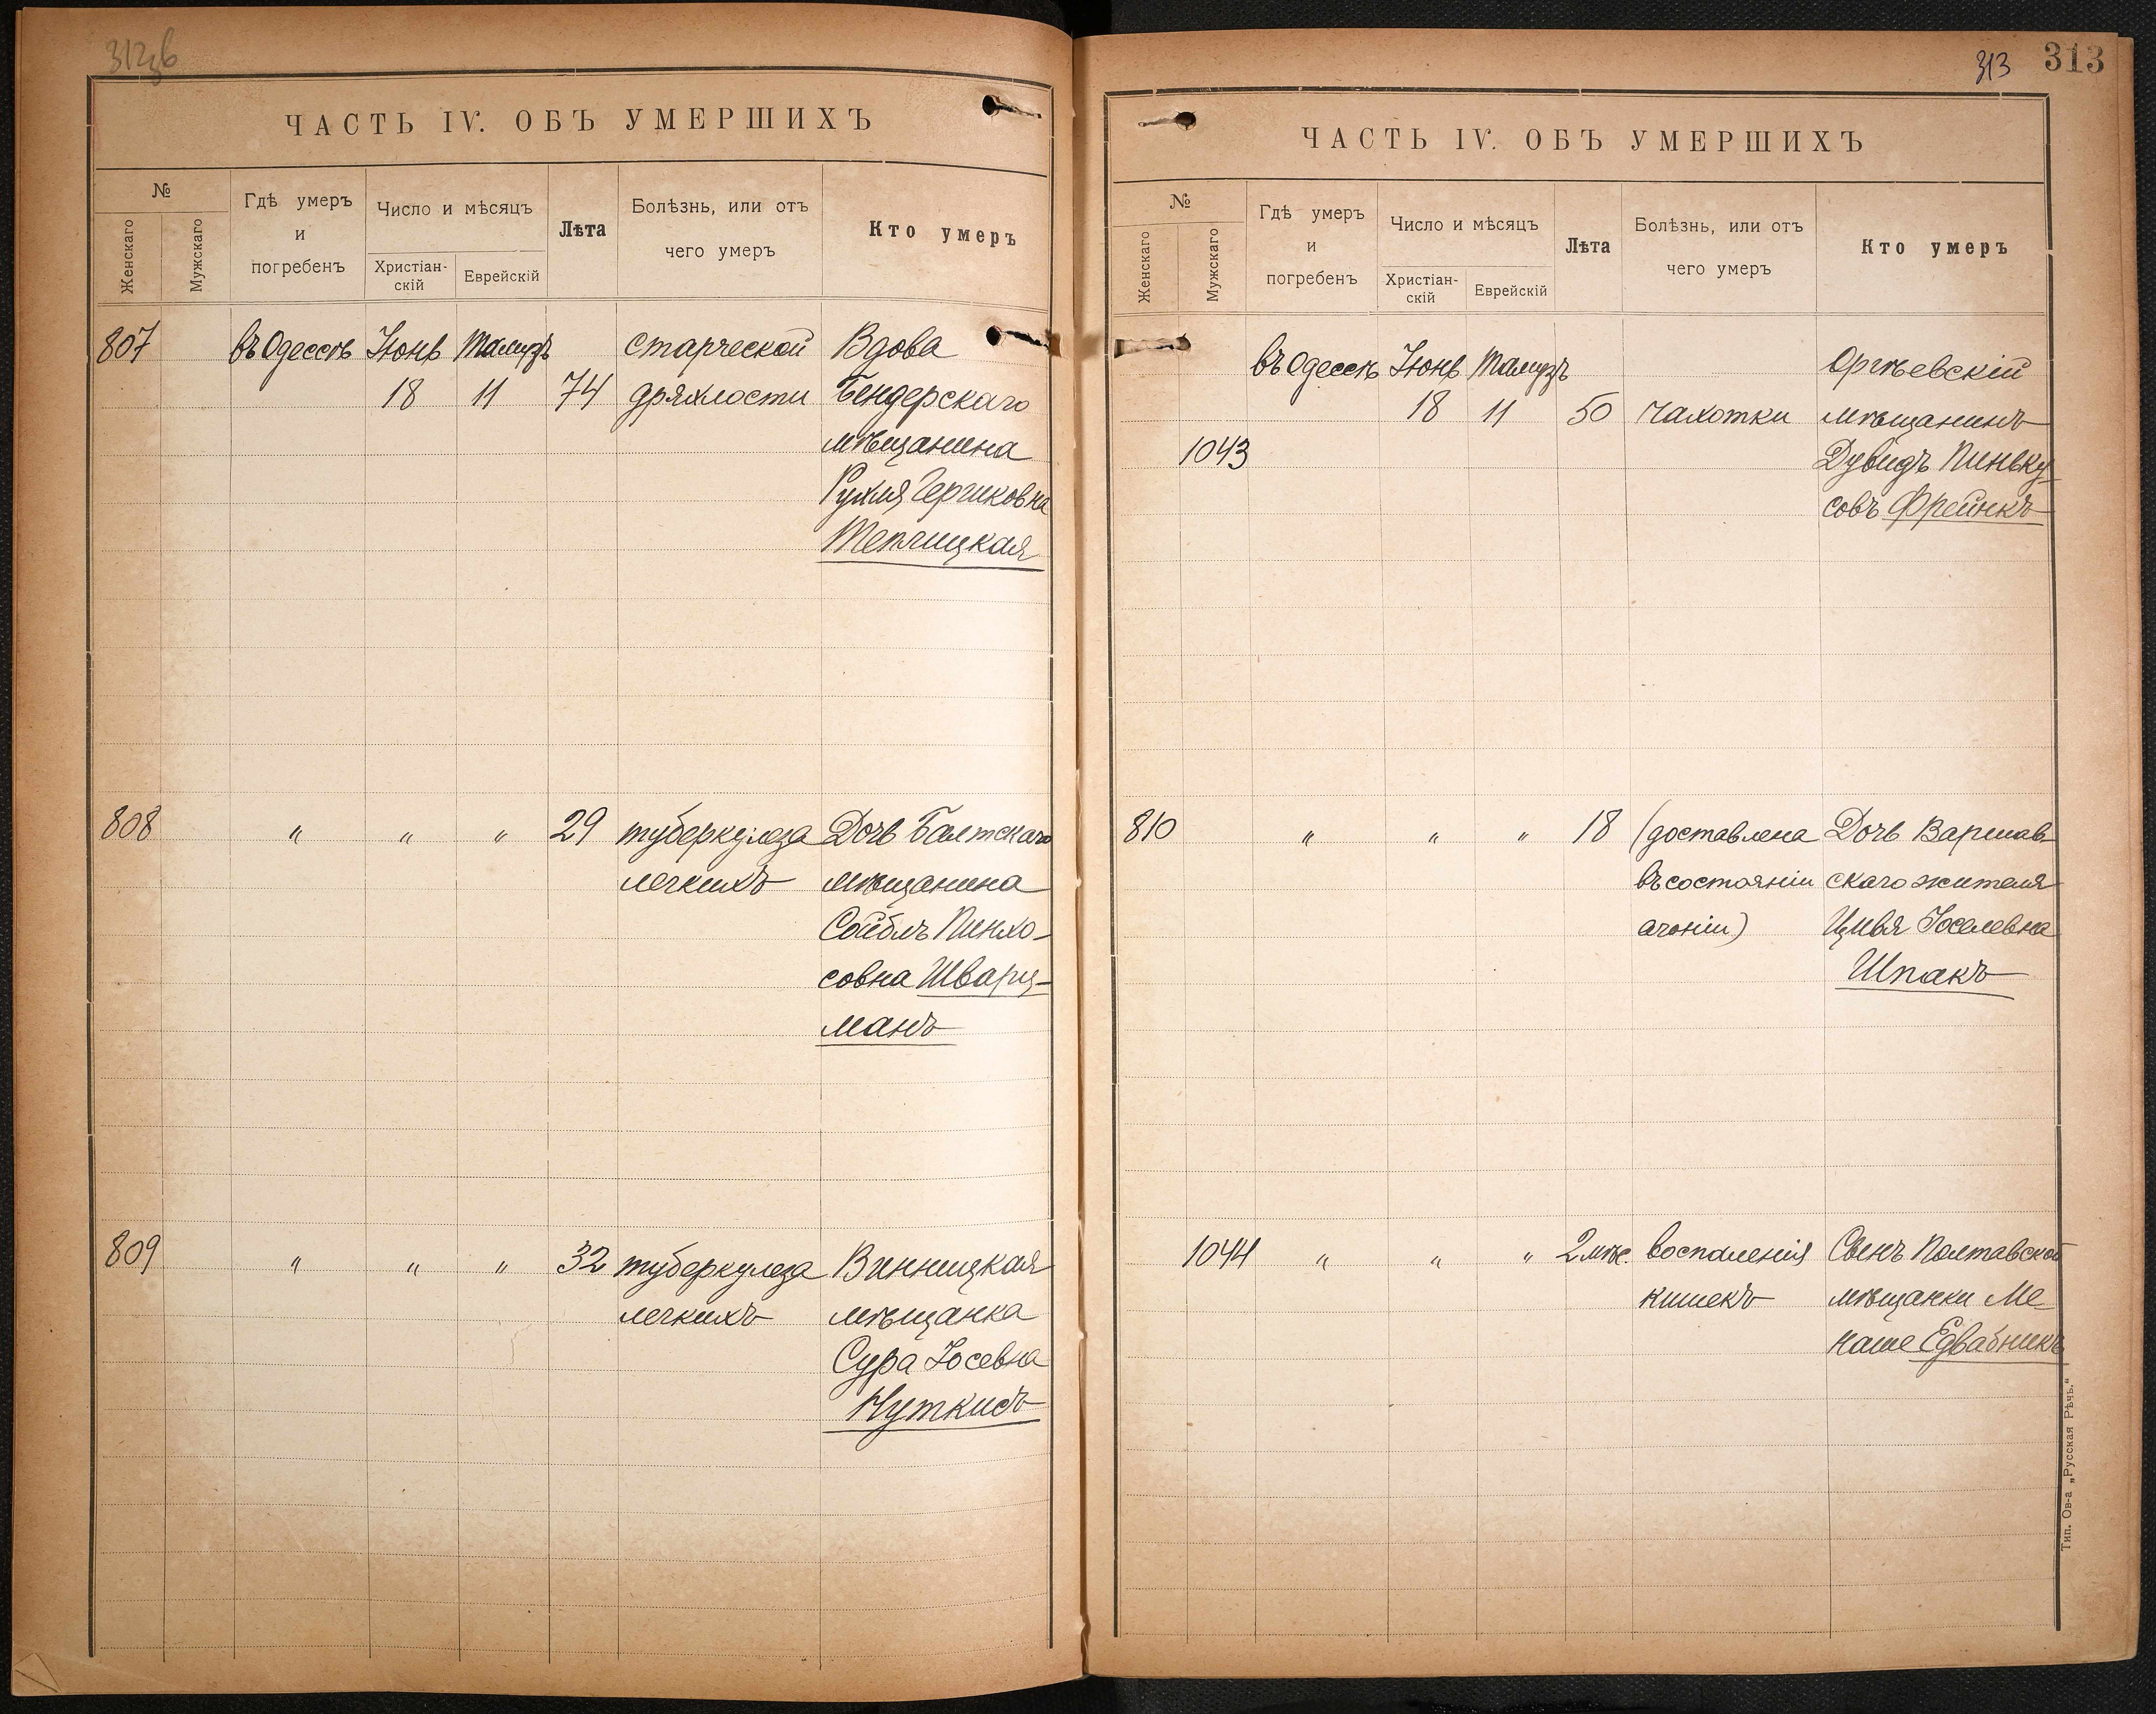 312зв
ЧАСТЬ IV. ОБЪ УМЕРШИХЪ
№
Женскаго
Мужскаго
Гдѣ умеръ
и
погребенъ
Число и мѣсяцъ
Христіан-
скій
Еврейскій
Лѣта
Болѣзнь, или отъ
чего умеръ
Кто умеръ
807 въ Одессѣ Іюнь Тамузъ старческой Вдова
18 11 74 дряхлости Бендерскаго
мѣщанина
Рухля Герчиковна
Теплицкая
808 " " " 29 туберкулеза Дочь Балтскаго
легкихъ мѣщанина
Сойблъ Пинхо-
совна Шварц-
манъ
809 " " " 32 туберкулеза Винницкая
легкихъ мѣщанка
Сура Іосевна
Нуткисъ
313 313
ЧАСТЬ IV. ОБЪ УМЕРШИХЪ
№
Женскаго
Мужскаго
Гдѣ умеръ
и
погребенъ
Число и мѣсяцъ
Христіан-
скій
Еврейскій
Лѣта
Болѣзнь, или отъ
чего умеръ
Кто умеръ
въ Одессѣ Іюнь Тамузъ Оргѣевскій
18 11 50 чахотки мѣщанинъ
1043 Дувидъ Пиньку-
совъ Фрейнкъ
810 " " " 18 (доставлена Дочь Варшав-
въ состояніи скаго жителя
агоніи) Цивя Іоселевна
Шпакъ
1044 " " " 2 мѣс. воспаленія Сынъ Полтавской
кишекъ мѣщанки Ме-
наше Едвабникъ
Тип. Ов-а „Русская Рѣчь.“